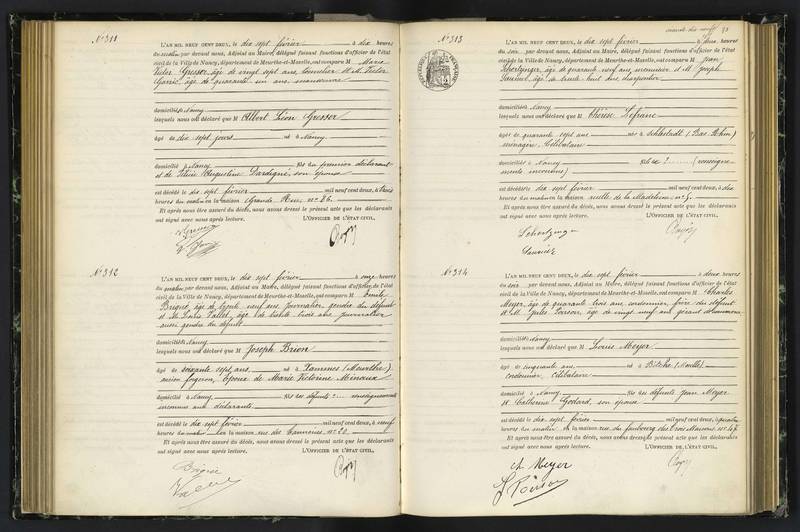 N° 311
L'AN MIL NEUF CENT DEUX, le dix sept février à dix heures
du matin par devant nous, Adjoint au Maire, délégué faisant fonctions d'officier de l'état
civil de la Ville de Nancy, département de Meurthe-et-Moselle, ont comparu M Marie
Victor Gresser, âgé de vingt sept ans, tonnelier et M. Victor
âgé de quarante un ans, manœuvre
domiciliés à Nancy
lesquels nous ont déclaré que M Albert Léon Gresser
âgé de dix sept jours né à Nancy
domicilié à Nancy fils du premier déclarant
et de Angeline Dardigné, son épouse
est décédé le dix sept février mil neuf cent deux, à trois
heures du matin en la maison Grande Rue, n° 86
Et après nous être assuré du décès, nous avons dressé le présent acte que les déclarants
ont signé avec nous après lecture. L'OFFICIER DE L'ÉTAT CIVIL,
N° 312
L'AN MIL NEUF CENT DEUX, le dix sept février à onze heures
du matin par devant nous, Adjoint au Maire, délégué faisant fonctions d'officier de l'état
civil de la Ville de Nancy, département de Meurthe-et-Moselle, ont comparu M Emile
Brignet, âgé de trente neuf ans, journalier, gendre du défunt
et M. Louis Vallet, âgé de trente trois ans journalier
aussi gendre du défunt
domiciliés à Nancy
lesquels nous ont déclaré que M Joseph Brion
âgé de soixante sept ans, né à Xammes (Meurthe)
ancien époux de Marie Victorine Minaux
domicilié à Nancy fils des défunts ?... renseignements
inconnus aux déclarants
est décédé le dix sept février mil neuf cent deux, à neuf
heures du matin en la maison rue des Tanneries, n° 20
Et après nous être assuré du décès, nous avons dressé le présent acte que les déclarants
ont signé avec nous après lecture. L'OFFICIER DE L'ÉTAT CIVIL,
N° 313
L'AN MIL NEUF CENT DEUX, le dix sept février à deux heures
du soir par devant nous, Adjoint au Maire, délégué faisant fonctions d'officier de l'état
civil de la Ville de Nancy, département de Meurthe-et-Moselle, ont comparu M Jean
âgé de quarante neuf ans, menuisier et M. Joseph
âgé de trente huit ans charpentier
domiciliés à Nancy
lesquels nous ont déclaré que M Thérèse Lefranc
âgée de quarante sept ans née à Schlestadt (Bas Rhin)
ménagère, célibataire
domiciliée à Nancy fille de ?...... (renseigne-
ments inconnus)
est décédée le dix sept février mil neuf cent deux, à dix
heures du matin en la maison ruelle de la Madeleine n° 5
Et après nous être assuré du décès, nous avons dressé le présent acte que les déclarants
ont signé avec nous après lecture. L'OFFICIER DE L'ÉTAT CIVIL,
N° 314
L'AN MIL NEUF CENT DEUX, le dix sept février à deux heures
du soir par devant nous, Adjoint au Maire, délégué faisant fonctions d'officier de l'état
civil de la Ville de Nancy, département de Meurthe-et-Moselle, ont comparu M Charles
Meyer, âgé de quarante trois ans, cordonnier, frère du défunt
et M. Jules Poirson, âgé de vingt neuf ans gérant d'immeuble
domiciliés à Nancy
lesquels nous ont déclaré que M Louis Meyer
âgé de cinquante ans né à Bitche (Moselle)
cordonnier, célibataire
domicilié à Nancy fils des défunts Jean Meyer
et Catherine Godard, son épouse
est décédé le dix sept février mil neuf cent deux, à quatre
heures du matin en la maison rue du faubourg des trois Maisons, n° 47
Et après nous être assuré du décès, nous avons dressé le présent acte que les déclarants
ont signé avec nous après lecture. L'OFFICIER DE L'ÉTAT CIVIL,
Ch Meyer
J Poirson